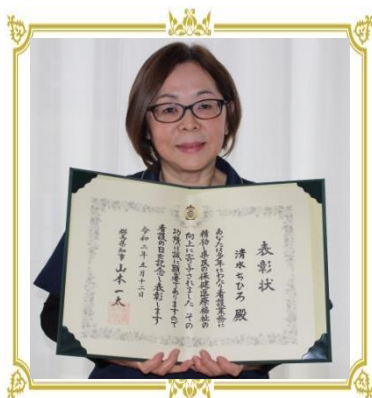 表彰状
清水ちひろ 殿
あなたは多年にわたり看護業務に
精励し県民の保健医療福祉の
向上に寄与されました その
功績は誠に顕著でありますので
看護の日を記念し表彰します
令和二年五月十二日
群馬県知事 山本一太